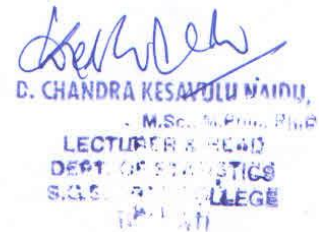 D. CHANDRA KESAVULU NAIDU,
M.Sc., M.Phil., Ph.D
LECTURER & HEAD
DEPT. OF STATISTICS
S.G.S. COLLEGE